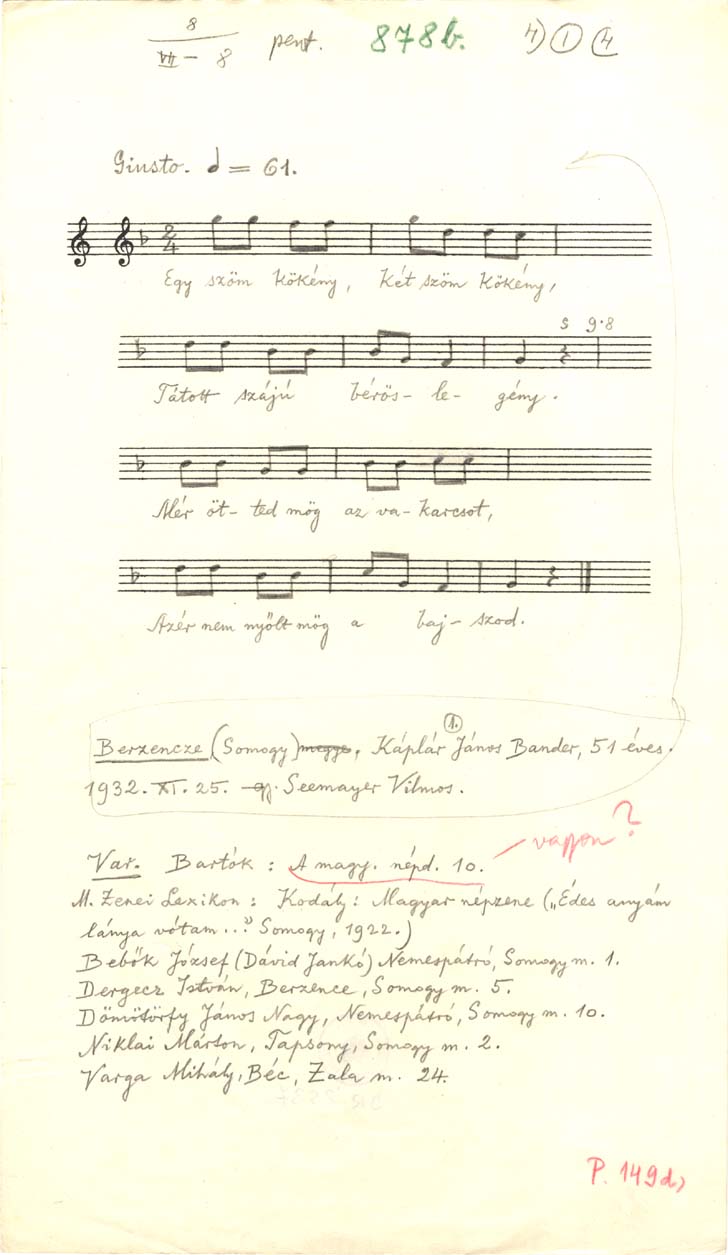 8
VII – 8 pent. 878b. 4) 1 (4
Giusto. = 61.
2
4
Egy szöm kökény, Két szöm kökény,
s 9·8
Tátott szájú bérös- le- gény.
Mér öt- ted mög az va- karcsot,
Azér nem nyőlt mög a baj- szod.
1.
Berzencze (Somogy) megye, Káplár János Bander, 51 éves.
1932. XI. 25. gy. Seemayer Vilmos.
Var. Bartók: A magy. népd. 10. vajjon?
M. Zenei Lexikon: Kodály: Magyar népzene („Édes anyám
lánya vótam...” Somogy, 1922.)
Bebők József (Dávid Jankó) Nemespátró, Somogy m. 1.
Dergecz István, Berzence, Somogy m. 5.
Dömötörfy János Nagy, Nemespátró, Somogy m. 10.
Niklai Márton, Tapsony, Somogy m. 2.
Varga Mihály, Béc, Zala m. 24.
P. 149d)